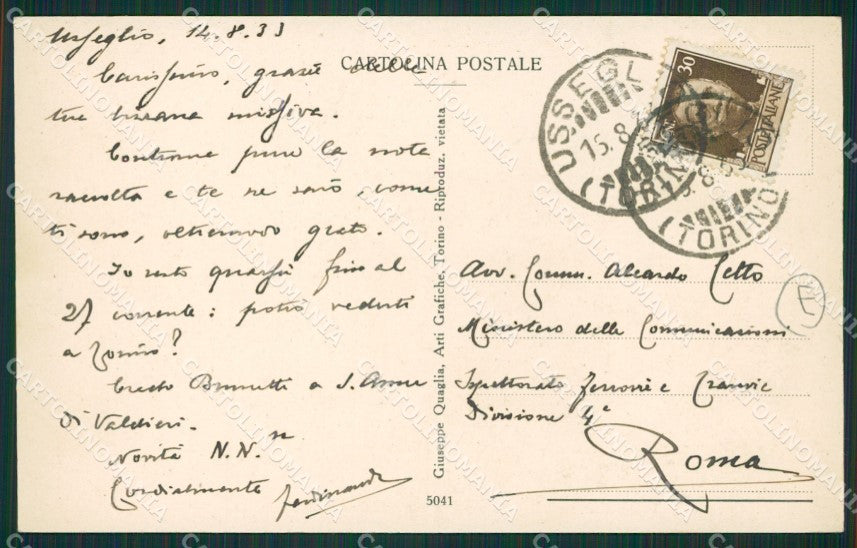 Usseglio, 14.8.33
Carissimo, grazie della
tua buona missiva.
Continua pure la nota
raccolta e te ne sarò, come
ti sono, oltremodo grato.
Io resto quassù fino al
27 corrente: potrò vederti
a Torino?
Credo Brunetti a S. Anna
di Valdieri.
Novità N.N.
Cordialmente Ferdinando
CARTOLINA POSTALE
Giuseppe Quaglia, Arti Grafiche, Torino - Riproduz. vietata
5041
USSEGL
15.8
(TORINO)
30
POSTE ITALIANE
(TORINO)
Avv. Comm. Aleardo Cetto
Ministero delle Comunicazioni
Ispettorato Ferrovie Tranvie
Divisione 4ª
Roma
CARTOLINOMANIA